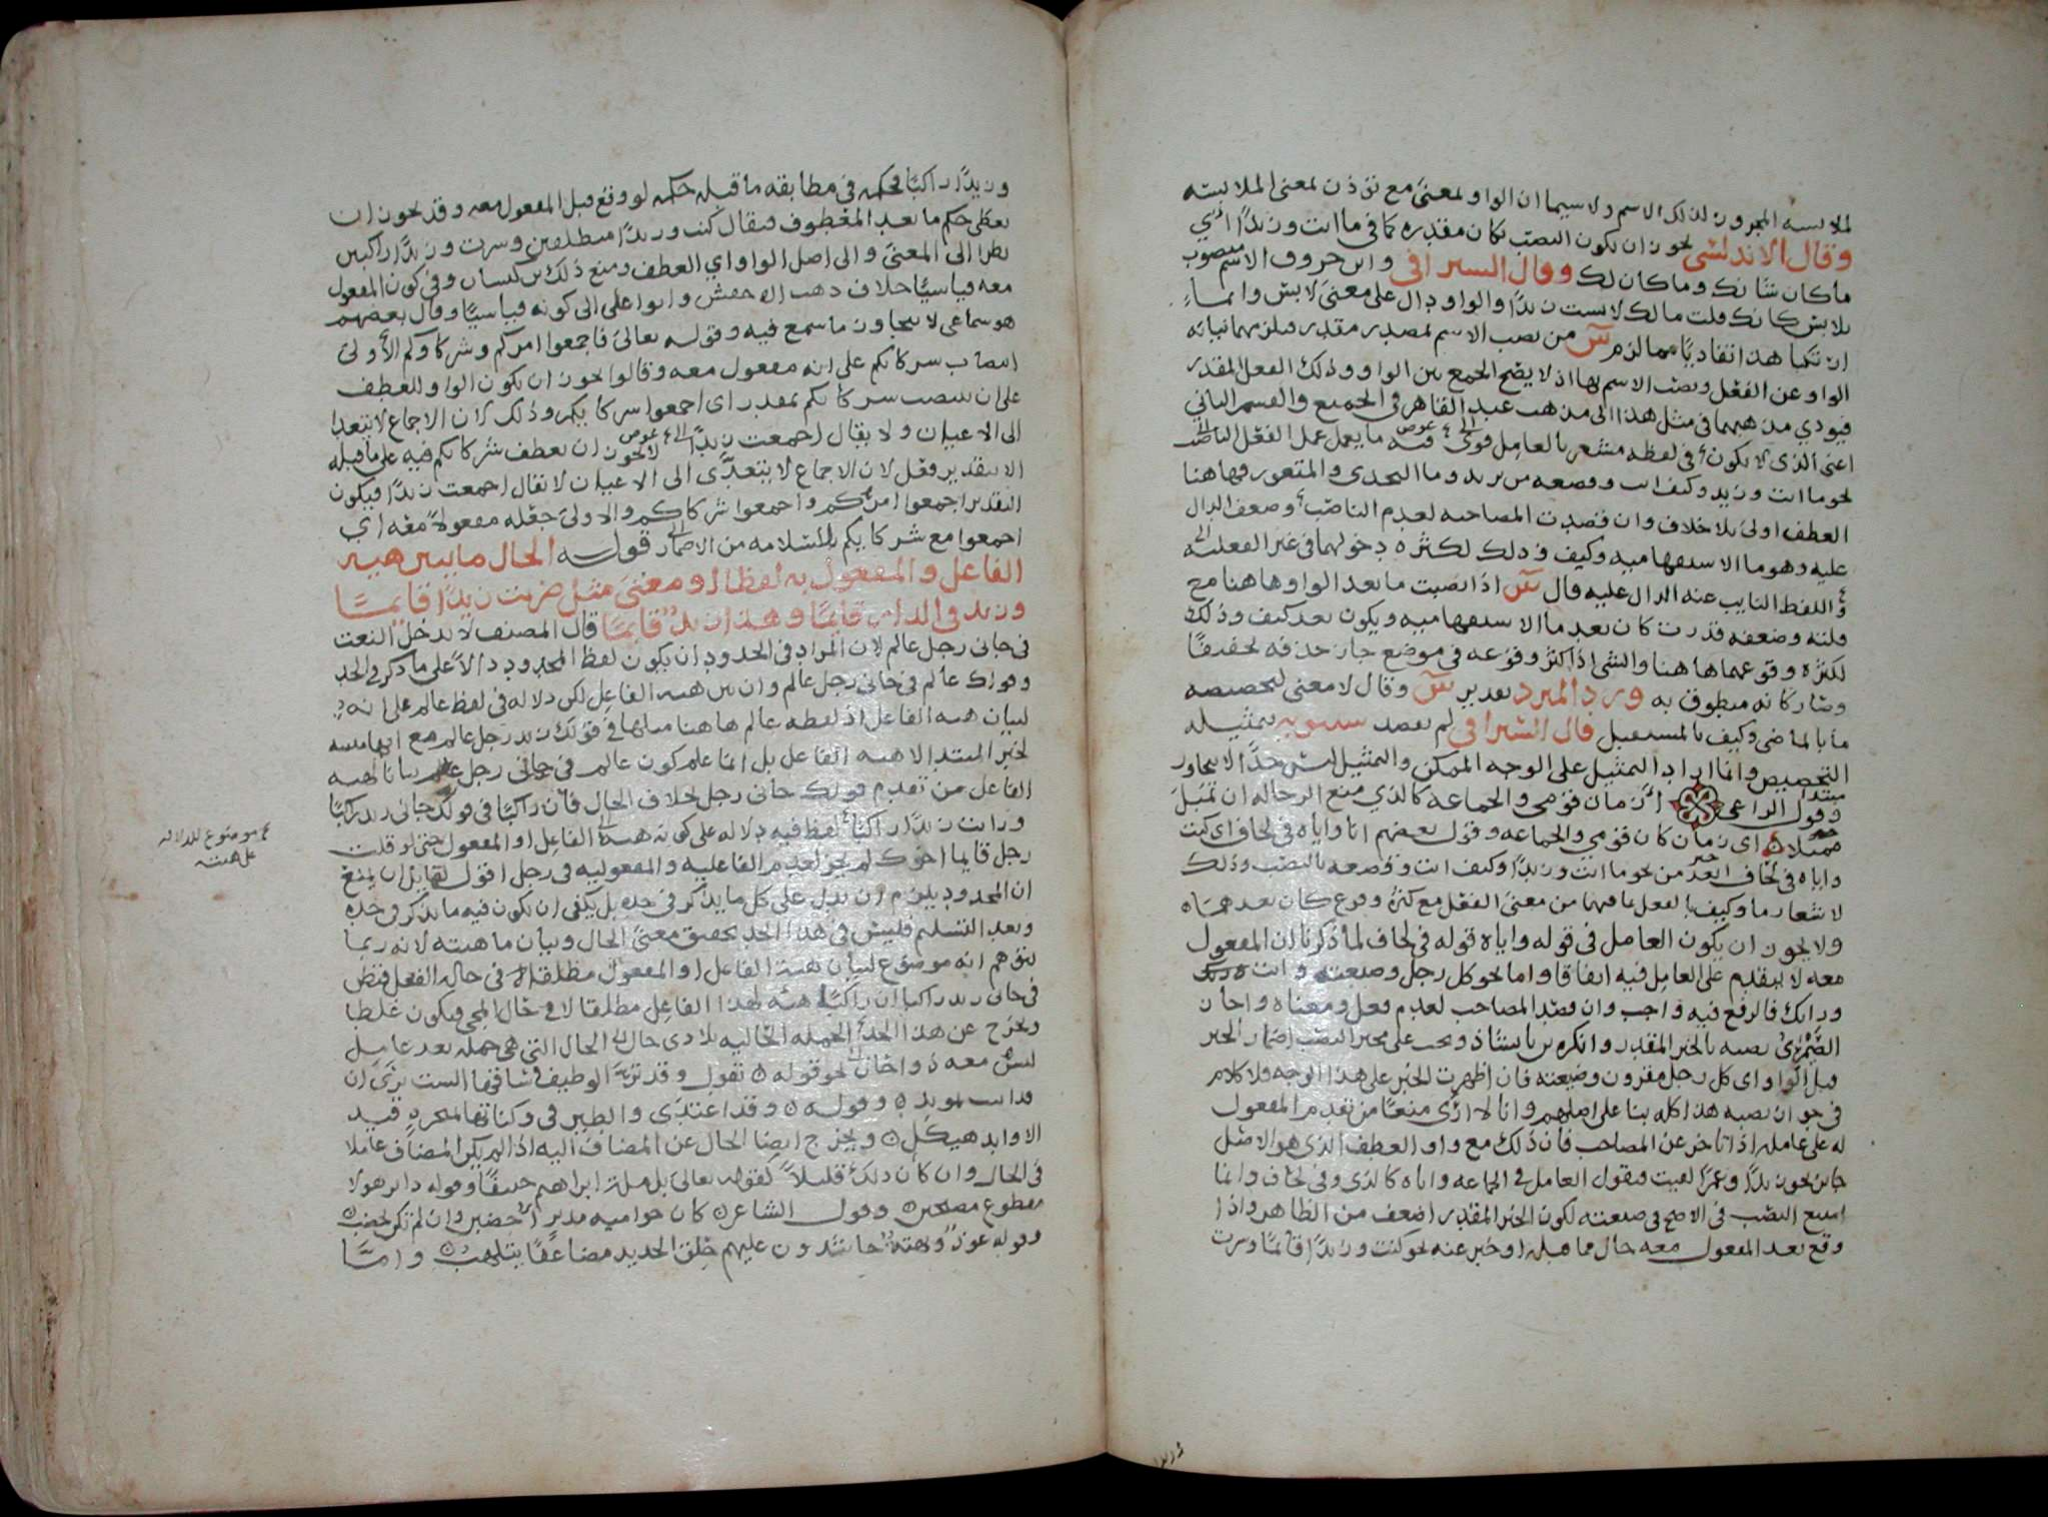 لملابسه المجرور لذلك الاسم ولا سيما ان الواو لمعنى مع تؤذن لمعنى الملابسه
وقال الاندلسي يجوز ان يكون النصب بكان مقدره كما في ما انت وزيدا اي
ماكان شانك وماكان لك وقال السيرافي وابن خروف الاسم منصوب
بلابس كانك قلت مالك لابست زيدا والواو دال على معنى لابس وانما
ارتكبا هذا تفاديا مما لزم س من نصب الاسم لمصدر مقدر فلزمهما نيابة
الواو عن الفعل ونصب الاسم بها اذ لا يصح الجمع بين الواو وذلك الفعل المقدر
فيودي مذهبهما في مثل هذا الى مذهب عبد القاهر في الجميع والقسم الثاني
اعني الذي لا يكون في لفظه مشعر بالعامل قوي فيه ما يعمل عمل الفعل الناصب
نحو ما انت وزيد وكيف انت وقصعه من ثريد وما النجدي والمتغور فهاهنا
العطف اولى بلا خلاف وان قصدت المصاحبه لعدم الناصب وضعف الدال
عليه وهو ما الاستفهاميه وكيف وذلك لكثره دخولهما في غير الفعليه
واللفظ النايب عنه الدال عليه قال س اذا نصبت ما بعد الواو هاهنا مع
قلته وضعفه قدرت كان بعد ما الاستفهاميه ويكون بعد كيف وذلك
لكثره وقوعهما هاهنا والشي اذا كثر وقوعه في موضع جاز حذفه تخفيفا
وصار كانه منطوق به ورد المبرد تقدير س وقال لا معنى لتخصيصه
ما بالماضي وكيف بالمستقبل قال السيرافي لم يقصد سيبويه بتمثيله
التخصيص وانما اراد التمثيل على الوجه الممكن والتمثيل ليس حدا لا يجاوز
وقول الراعي ازمان قومي والجماعه كالذي منع الرحاله ان تميل
مميلا اي زمان كان قومي والجماعه وقول بعضهم انا واياه في لحاف اي كنت
واياه في لحاف ابعد من نحو ما انت وزيدا وكيف انت وقصعه بالنصب وذلك
لاشعار ما وكيف بالفعل لما فيهما من معنى الفعل مع كثره وقوع كان بعدهما
ولا يجوز ان يكون العامل في قوله واياه قوله في لحاف لما ذكرنا ان المفعول
معه لا يتقدم على العامل فيه اتفاقا واما نحو كل رجل وضيعته وانت
ورايك فالرفع فيه واجب وان قصد المصاحب لعدم فعل ومعناه واجاز
الصيمري نصبه بالخبر المقدر وانكره بن بابشاذ ويجب على مجيز النصب اضمار الخبر
قبل الواو اي كل رجل مقرون وضيعته فان اظهرت الخبر على هذا الوجه فلا كلام
في جواز نصبه هذا كله بنا على اصلهم وانا لا ارى منعا من تقدم المفعول
له على عامله اذا تاخر عن المصاحب فان ذلك مع واو العطف الذي هو الاصل
جايز نحو زيدا وعمرا لقيت فنقول العامل في الجماعه واياه كالذي وفي لحاف وانما
امتنع النصب في الاصح في ضيعته لكون الخبر المقدر اضعف من الظاهر واذا
وقع بعد المفعول معه حال مما قبله او خبر عنه نحو كنت وزيدا قائما وسرت
وزيدا راكبا فحكمه في مطابقه ما قبله حكمه لو وقع قبل المفعول معه وقد يجوز ان
يعطى حكم ما بعد المعطوف فيقال كنت وزيدا منطلقين وسرت وزيدا راكبين
نظرا الى المعنى والى اصل الواو اي العطف ومنع ذلك بن كيسان وفي كون المفعول
معه قياسيا خلاف ذهب الاخفش وابو علي الى كونه قياسيا وقال بعضهم
هو سماعي لا يتجاوز ما سمع فيه وقوله تعالى فاجمعوا امركم وشركاوكم الأولى
انتصاب شركائكم على انه مفعول معه وقالوا يجوز ان يكون الواو للعطف
على ان ينتصب شركائكم بمقدر اي اجمعوا شركايكم وذلك لان الاجماع لا يتعدا
الى الاعيان ولا يقال اجمعت زيدا لا يجوز ان يعطف شركائكم فيه على ما قبله
الا بتقدير فعل لان الاجماع لا يتعدى الى الاعيان لا يقال اجمعت زيدا فيكون
التقدير اجمعوا امركم واجمعوا شركاكم والاولى جعله مفعولا معه اي
اجمعوا مع شركايكم للسلامه من الاضمار قوله الحال ما يبين هيه
الفاعل والمفعول به لفظا او معنى مثل ضربت زيدا قايما
وزيد في الدار قايما وهذا زيد قايما قال المصنف لا يدخل النعت
في جاني رجل عالم لان المراد في الحدود ان يكون لفظ المحدود دالا على ما ذكر في الحد
وقولك عالم في جاني رجل عالم وان بين هيه الفاعل لكن لا دلاله في لفظ عالم على انه
لبيان هيه الفاعل اذ لفظه عالم هاهنا مثلها في قولك زيد رجل عالم مع انها مبينه
لخبر المبتدا لا هيه الفاعل بل انما علم كون عالم في جاني رجل عالم بيانا لهيه
الفاعل من تقدم قولك جاني رجل بخلاف الحال فان راكبا في قولك جاني زيد راكبا
ورايت زيدا راكبا لفظ فيه دلاله على كونه هيه الفاعل او المفعول حتى لو قلت
رجل قايما اخوك لم يجز لعدم الفاعليه والمفعوليه في رجل اقول لقايل ان يمنع
ان المحدود يلزم ان يدل على كل ما يذكر في حده بل يكفي ان يكون فيه ما يذكر في حده
وبعد التسليم فليس في هذا الحد تحقيق معنى الحال وبيان ماهيته لانه ربما
يتوهم انه موضوع لبيان هيه الفاعل او المفعول مطلقا لا في حاله الفعل فيظن
في جاني زيد راكبا ان راكبا هيئه لهذا الفاعل مطلقا لا في حال المجي فيكون غلطا
ويخرج عن هذا الحد الجمله الحاليه بلا ذي حال الحال التي هي جمله بعد عامل
ليس معه ذو حال نحو قوله تقول وقد تر الوظيف وساقها الست ترى ان
قد اتيت بمويد وقوله وقد اغتدي والطير في وكناتها بمنجرد قيد
الاوابد هيكل ويخرج ايضا الحال عن المضاف اليه اذا لم يكن المضاف عاملا
في الحال وان كان ذلك قليلا كقوله تعالى بل مله ابراهيم حنيفا وقوله دابر هولا
مقطوع مصبحين وقول الشاعر كان حواميه مدبرا خضبن وان لم تكن تخضب
وقوله عوذ وبهثه حاشدون عليهم حلق الحديد مضاعفا يتلهب واما
موضوع للدلاله
على هيه